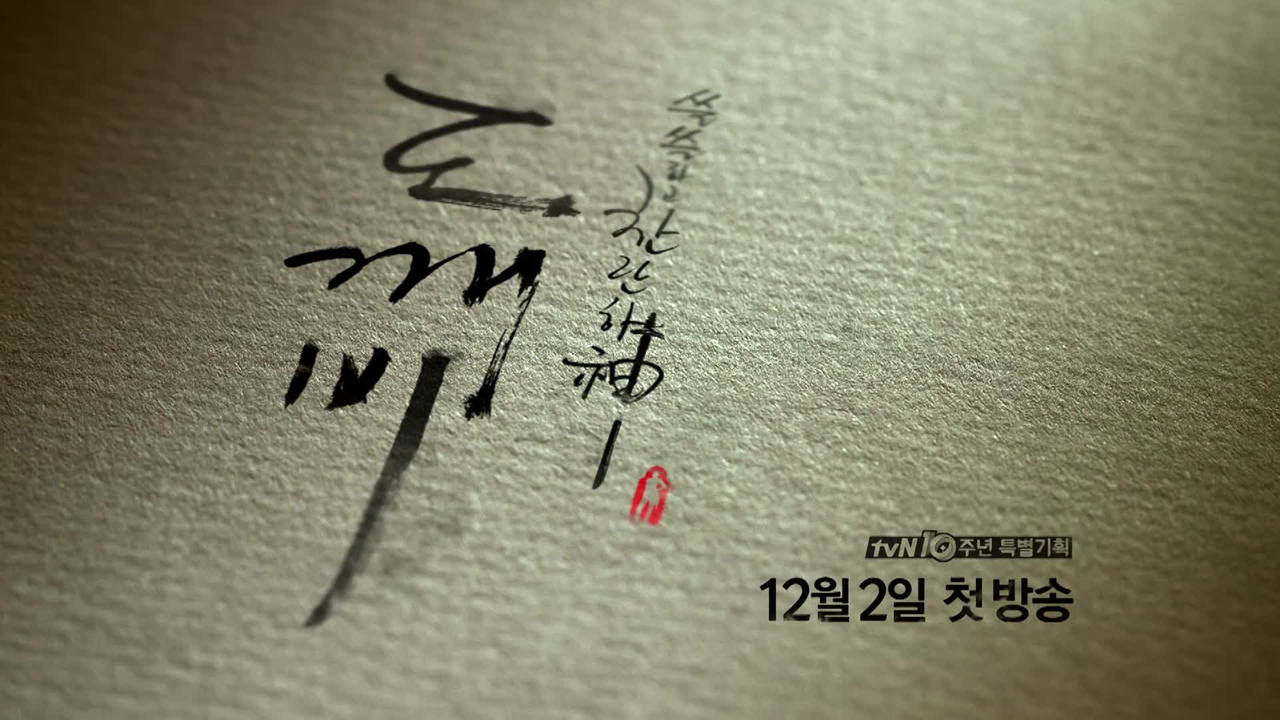 도깨비
쓸쓸하고
찬란하神-
tvN10주년 특별기획
12월 2일 첫방송